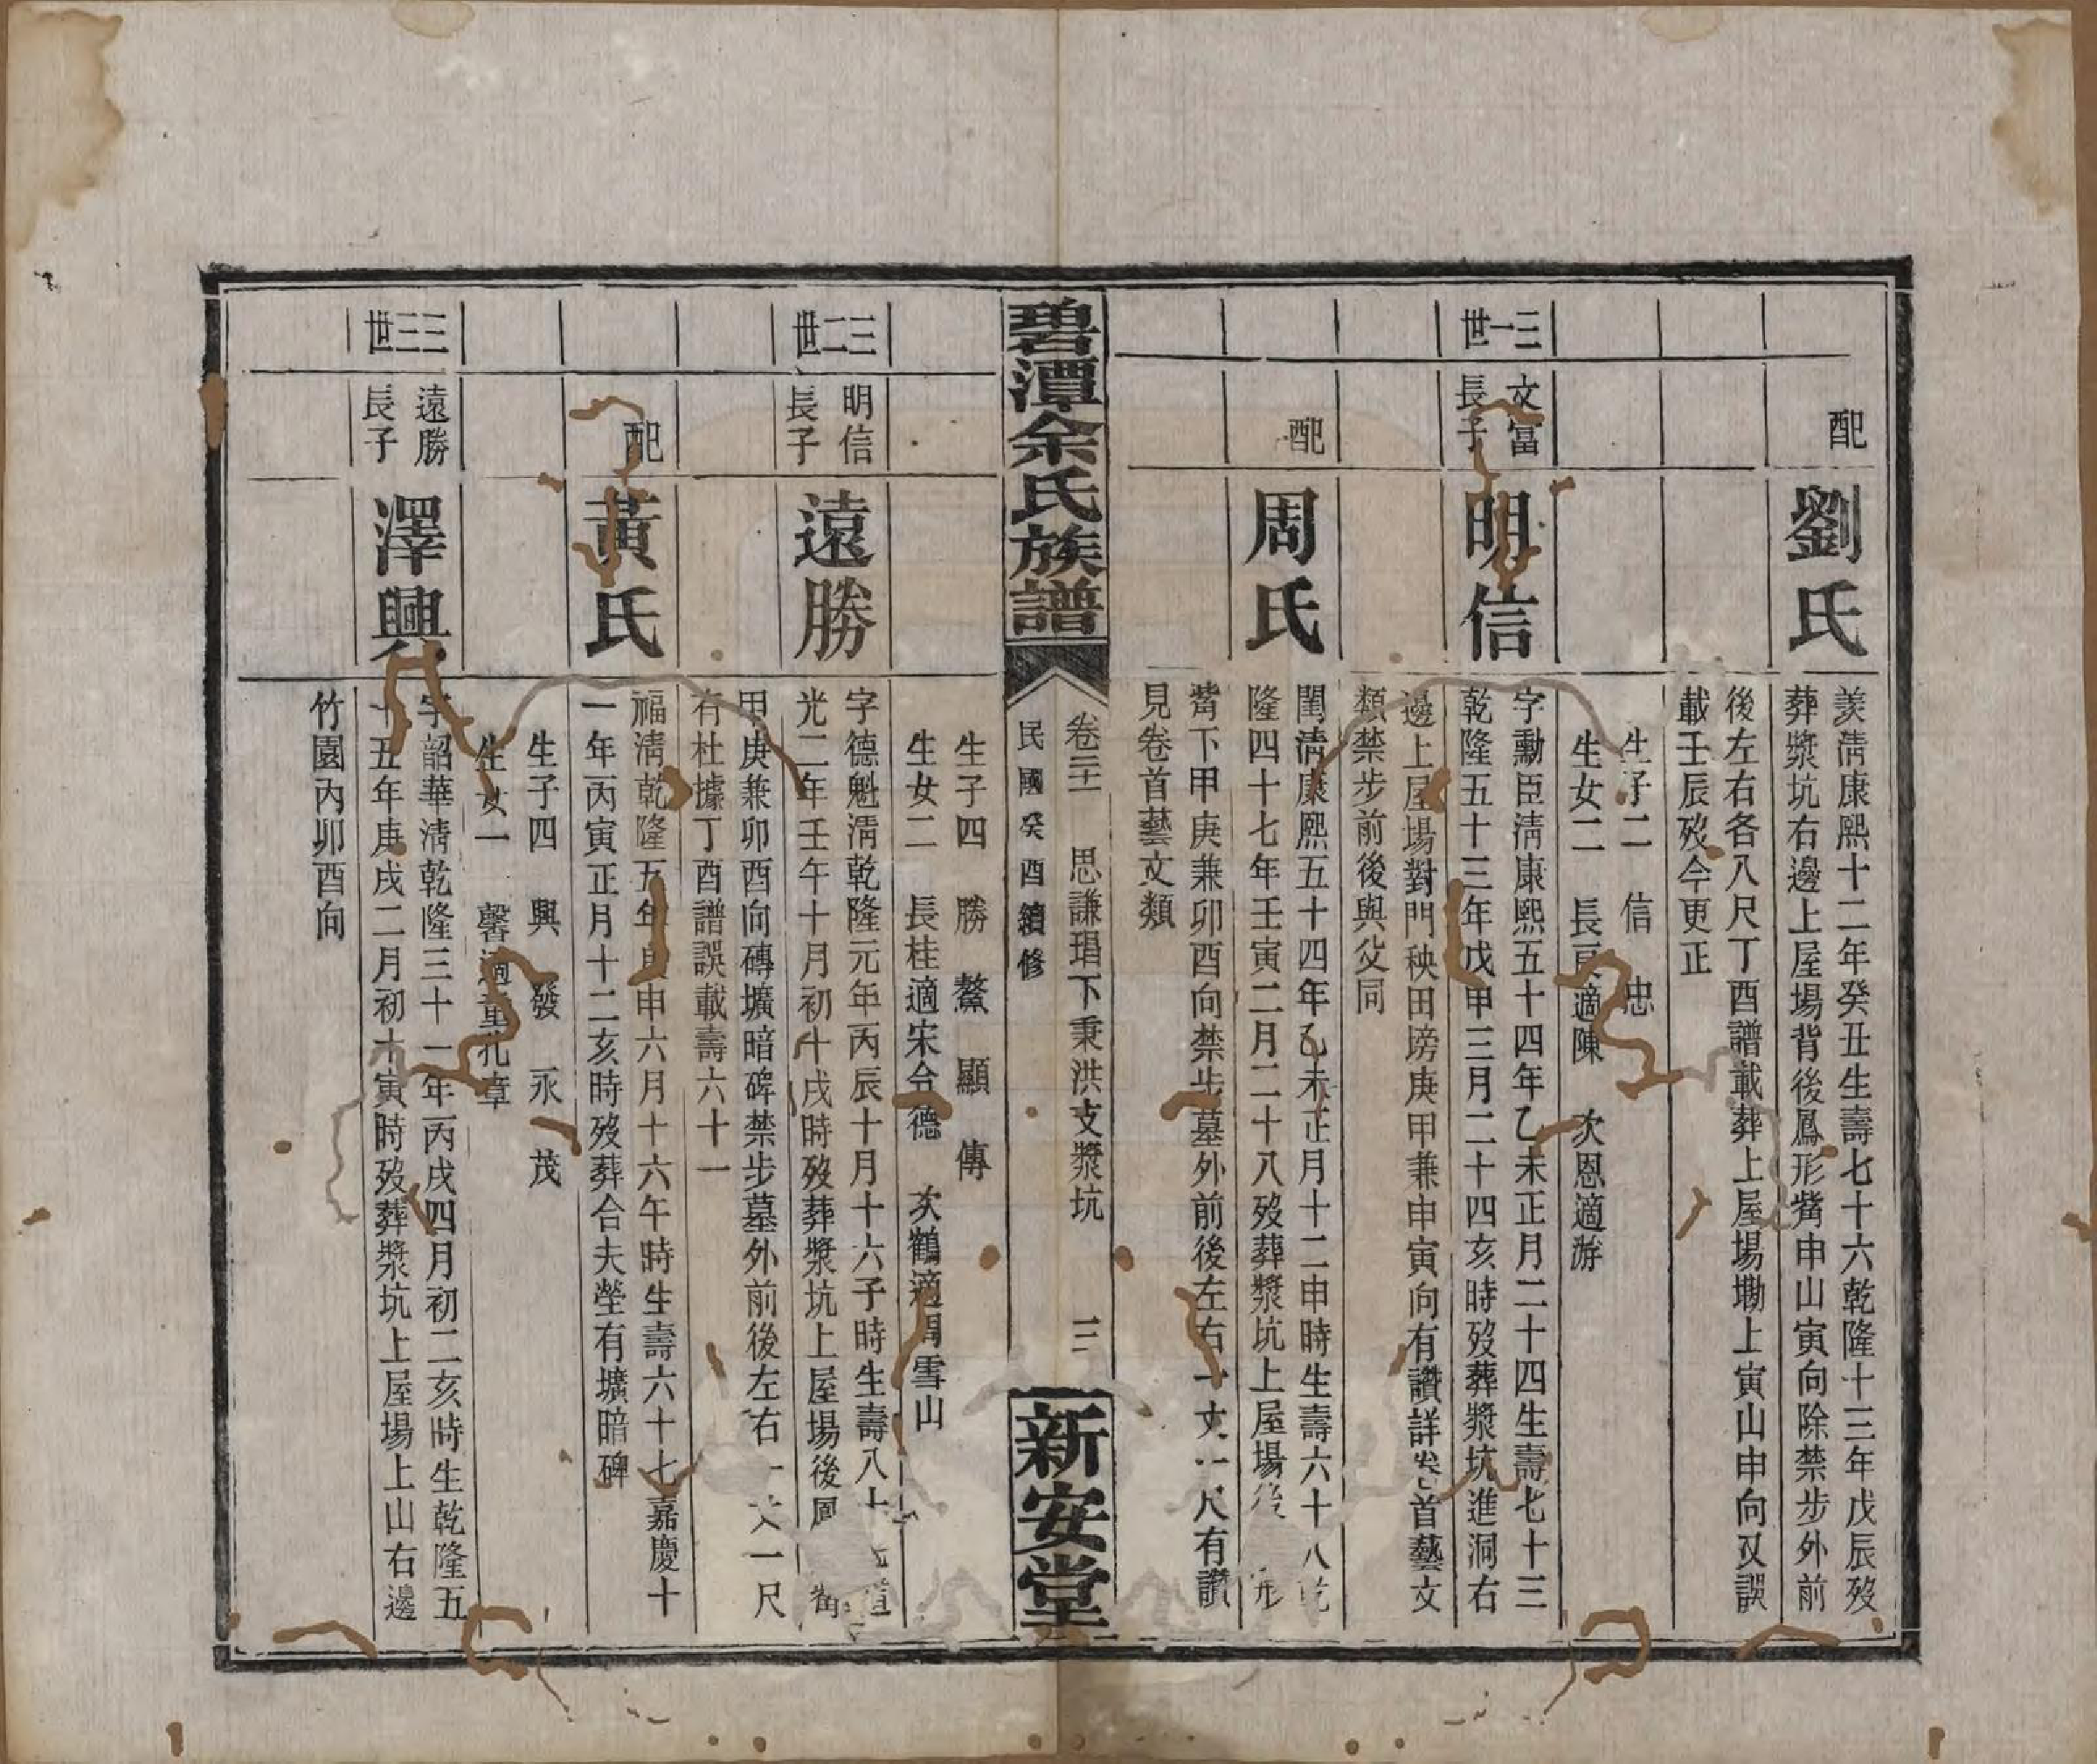 配
劉氏
羨清康熙十二年癸丑生壽七十六乾隆十三年戊辰歿
葬漿坑右邊上屋場背後鳳形觜申山寅向除禁步外前
後左右各八尺丁酉譜載葬上屋場墈上寅山申向又誤
載壬辰歿今更正
生子二 信 忠
生女二 長 適陳 次恩適游
三一世
文富
長子
明信
字勳臣清康熙五十四年乙未正月二十四生壽七十三
乾隆五十三年戊申三月二十四亥時歿葬漿坑進洞右
邊上屋場對門秧田塝庚甲兼申寅向有讚詳卷首藝文
類禁步前後與父同
配
周氏
閏清康熙五十四年乙未正月十二申時生壽六十八乾
隆四十七年壬寅二月二十八歿葬漿坑上屋場後 形
觜下甲庚兼卯酉向禁步墓外前後左右一丈一尺有讚
見卷首藝文類
碧潭余氏族譜
卷二 思謙琩下秉洪支漿坑 三
民國癸酉續修
新安堂
生子四 勝 鰲 顯 傳
生女二 長桂適宋令德 次鶴適 雪山
三二世
明信
長子
遠勝
字德魁清乾隆元年丙辰十月十六子時生壽八十 道
光二年壬午十月初十戌時歿葬漿坑上屋場後鳳 觜
甲庚兼卯酉向磚壙暗碑禁步墓外前後左右一丈一尺
有杜據丁酉譜誤載壽六十一
配
黃氏
福清乾隆五年庚申六月十六午時生壽六十七嘉慶十
一年丙寅正月十二亥時歿葬合夫塋有壙暗碑
生子四 興 發 永 茂
生女一 馨適童孔章
三三世
遠勝
長子
澤興
字韶華清乾隆三十一年丙戌四月初二亥時生乾隆五
十五年庚戌二月初十寅時歿葬漿坑上屋場上山右邊
竹園內卯酉向